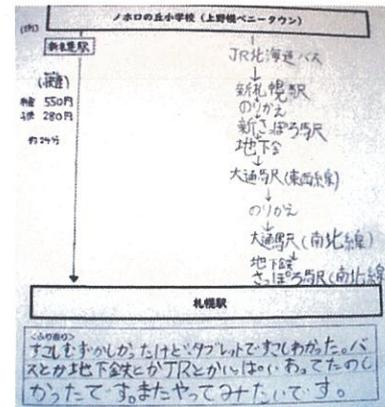 ノホロの丘小学校（上野幌ペニータウン）
新札幌駅
550円
280円
約24分
JR北海道バス
↓
新札幌駅
のりかえ
新さっぽろ駅
地下鉄
↓
大通駅(東西線)
↓
のりかえ
↓
大通駅(南北線)
地下鉄
さっぽろ駅(南北線
札幌駅
<ふり返り>
すこしむずかしかったけど、タブレットですこしわかった。バ
スとか地下鉄とかJRとかいっぱいあってたのし
かったです。またやってみたいです。